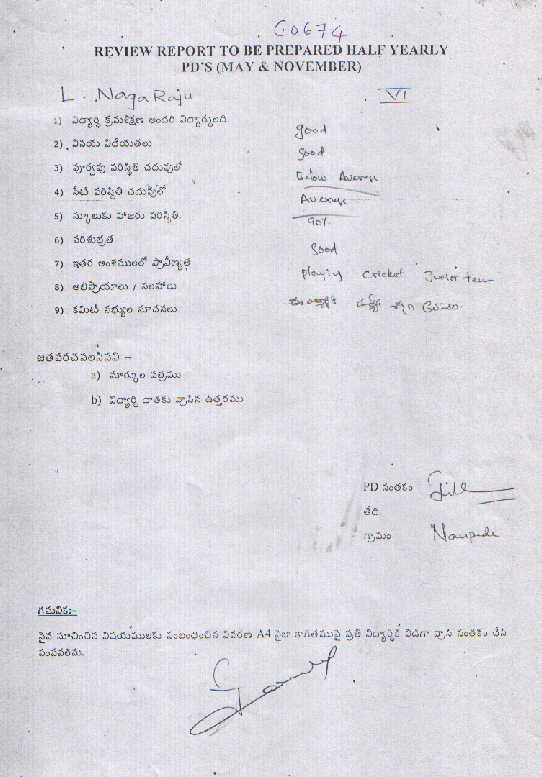 C0674
REVIEW REPORT TO BE PREPARED HALF YEARLY
PD'S (MAY & NOVEMBER)
L. Naga Raju VI
1) విద్యార్థి క్రమశిక్షణ అందరి విద్యార్థులది good
2) విషయ విధేయతలు good
3) పూర్వపు పరిస్థితి చదువులో Below Average
4) నేటి పరిస్థితి చదువులో Average
5) స్కూలుకు హాజరు పరిస్థితి. 90%
6) పరిశుభ్రత Good
7) ఇతర అంశములలో ప్రావీణ్యత playing Cricket Junior team
8) అభిప్రాయాలు / సలహాలు
9) కమిటీ సభ్యుల సూచనలు
జతపరచవలసినవి :-
a) మార్కుల పత్రము
b) విద్యార్థి దాతకు వ్రాసిన ఉత్తరము
PD సంతకం
తేది
గ్రామం Naupada
గమనిక:-
పైన సూచించిన విషయములకు సంబంధించిన వివరణ A4 సైజు కాగితముపై ప్రతి విద్యార్థికి విడిగా వ్రాసి సంతకం చేసి
పంపవలెను.